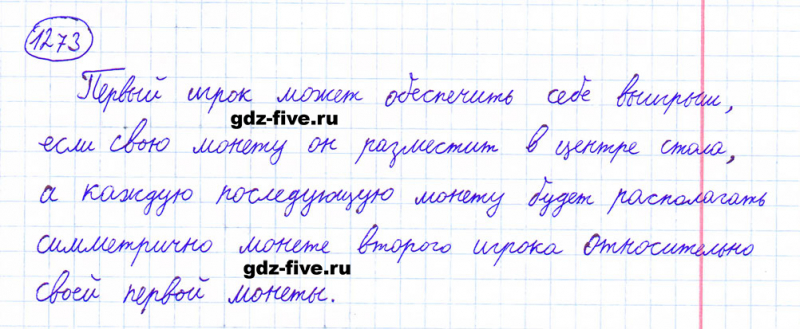 1273
Первый игрок может обеспечить себе выигрыш,
gdz-five.ru
если свою монету он разместит в центре стола,
а каждую последующую монету будет располагать
симметрично монете второго игрока относительно
gdz-five.ru
своей первой монеты.